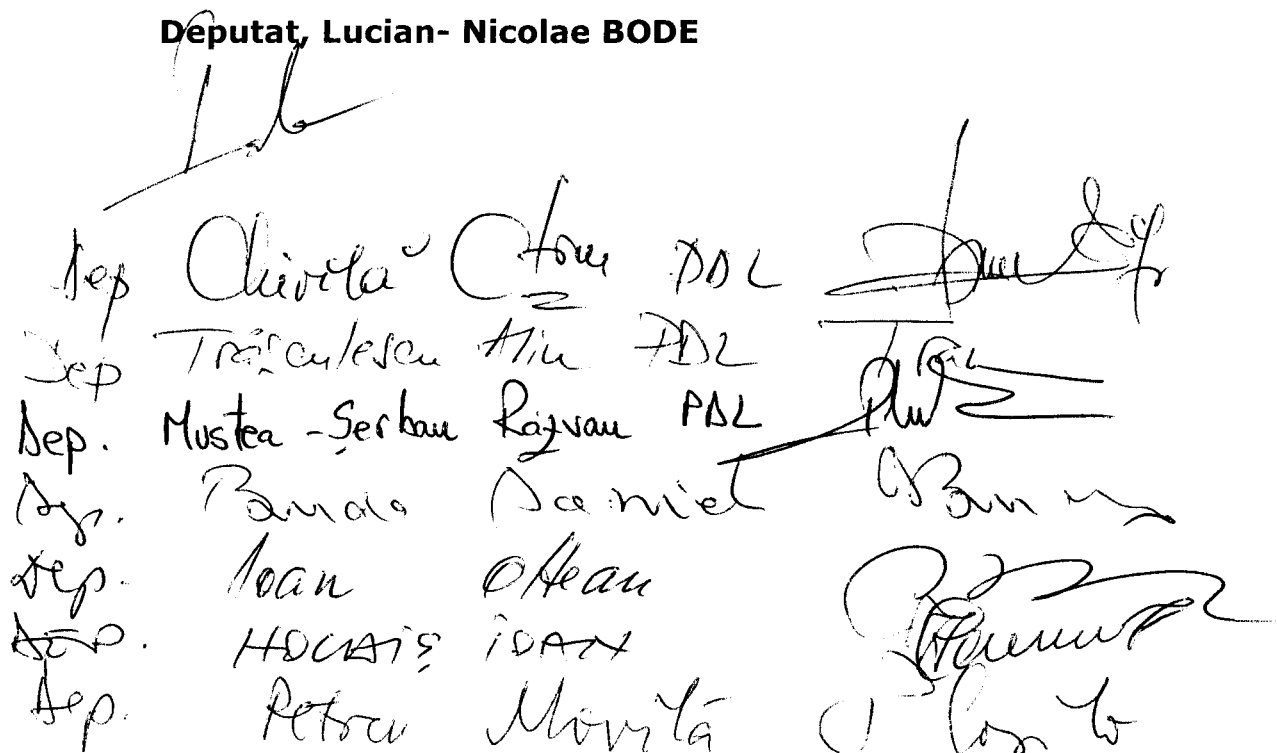 Deputat, Lucian- Nicolae BODE
Dep Chivită Toni PDL
Dep Trășculescu Alin PDL
Dep. Mustea-Șerban Răzvan PDL
Dep. Buda Daniel
Dep. Ioan Oltean
DEP. IOAN
Dep. Petru Movilă